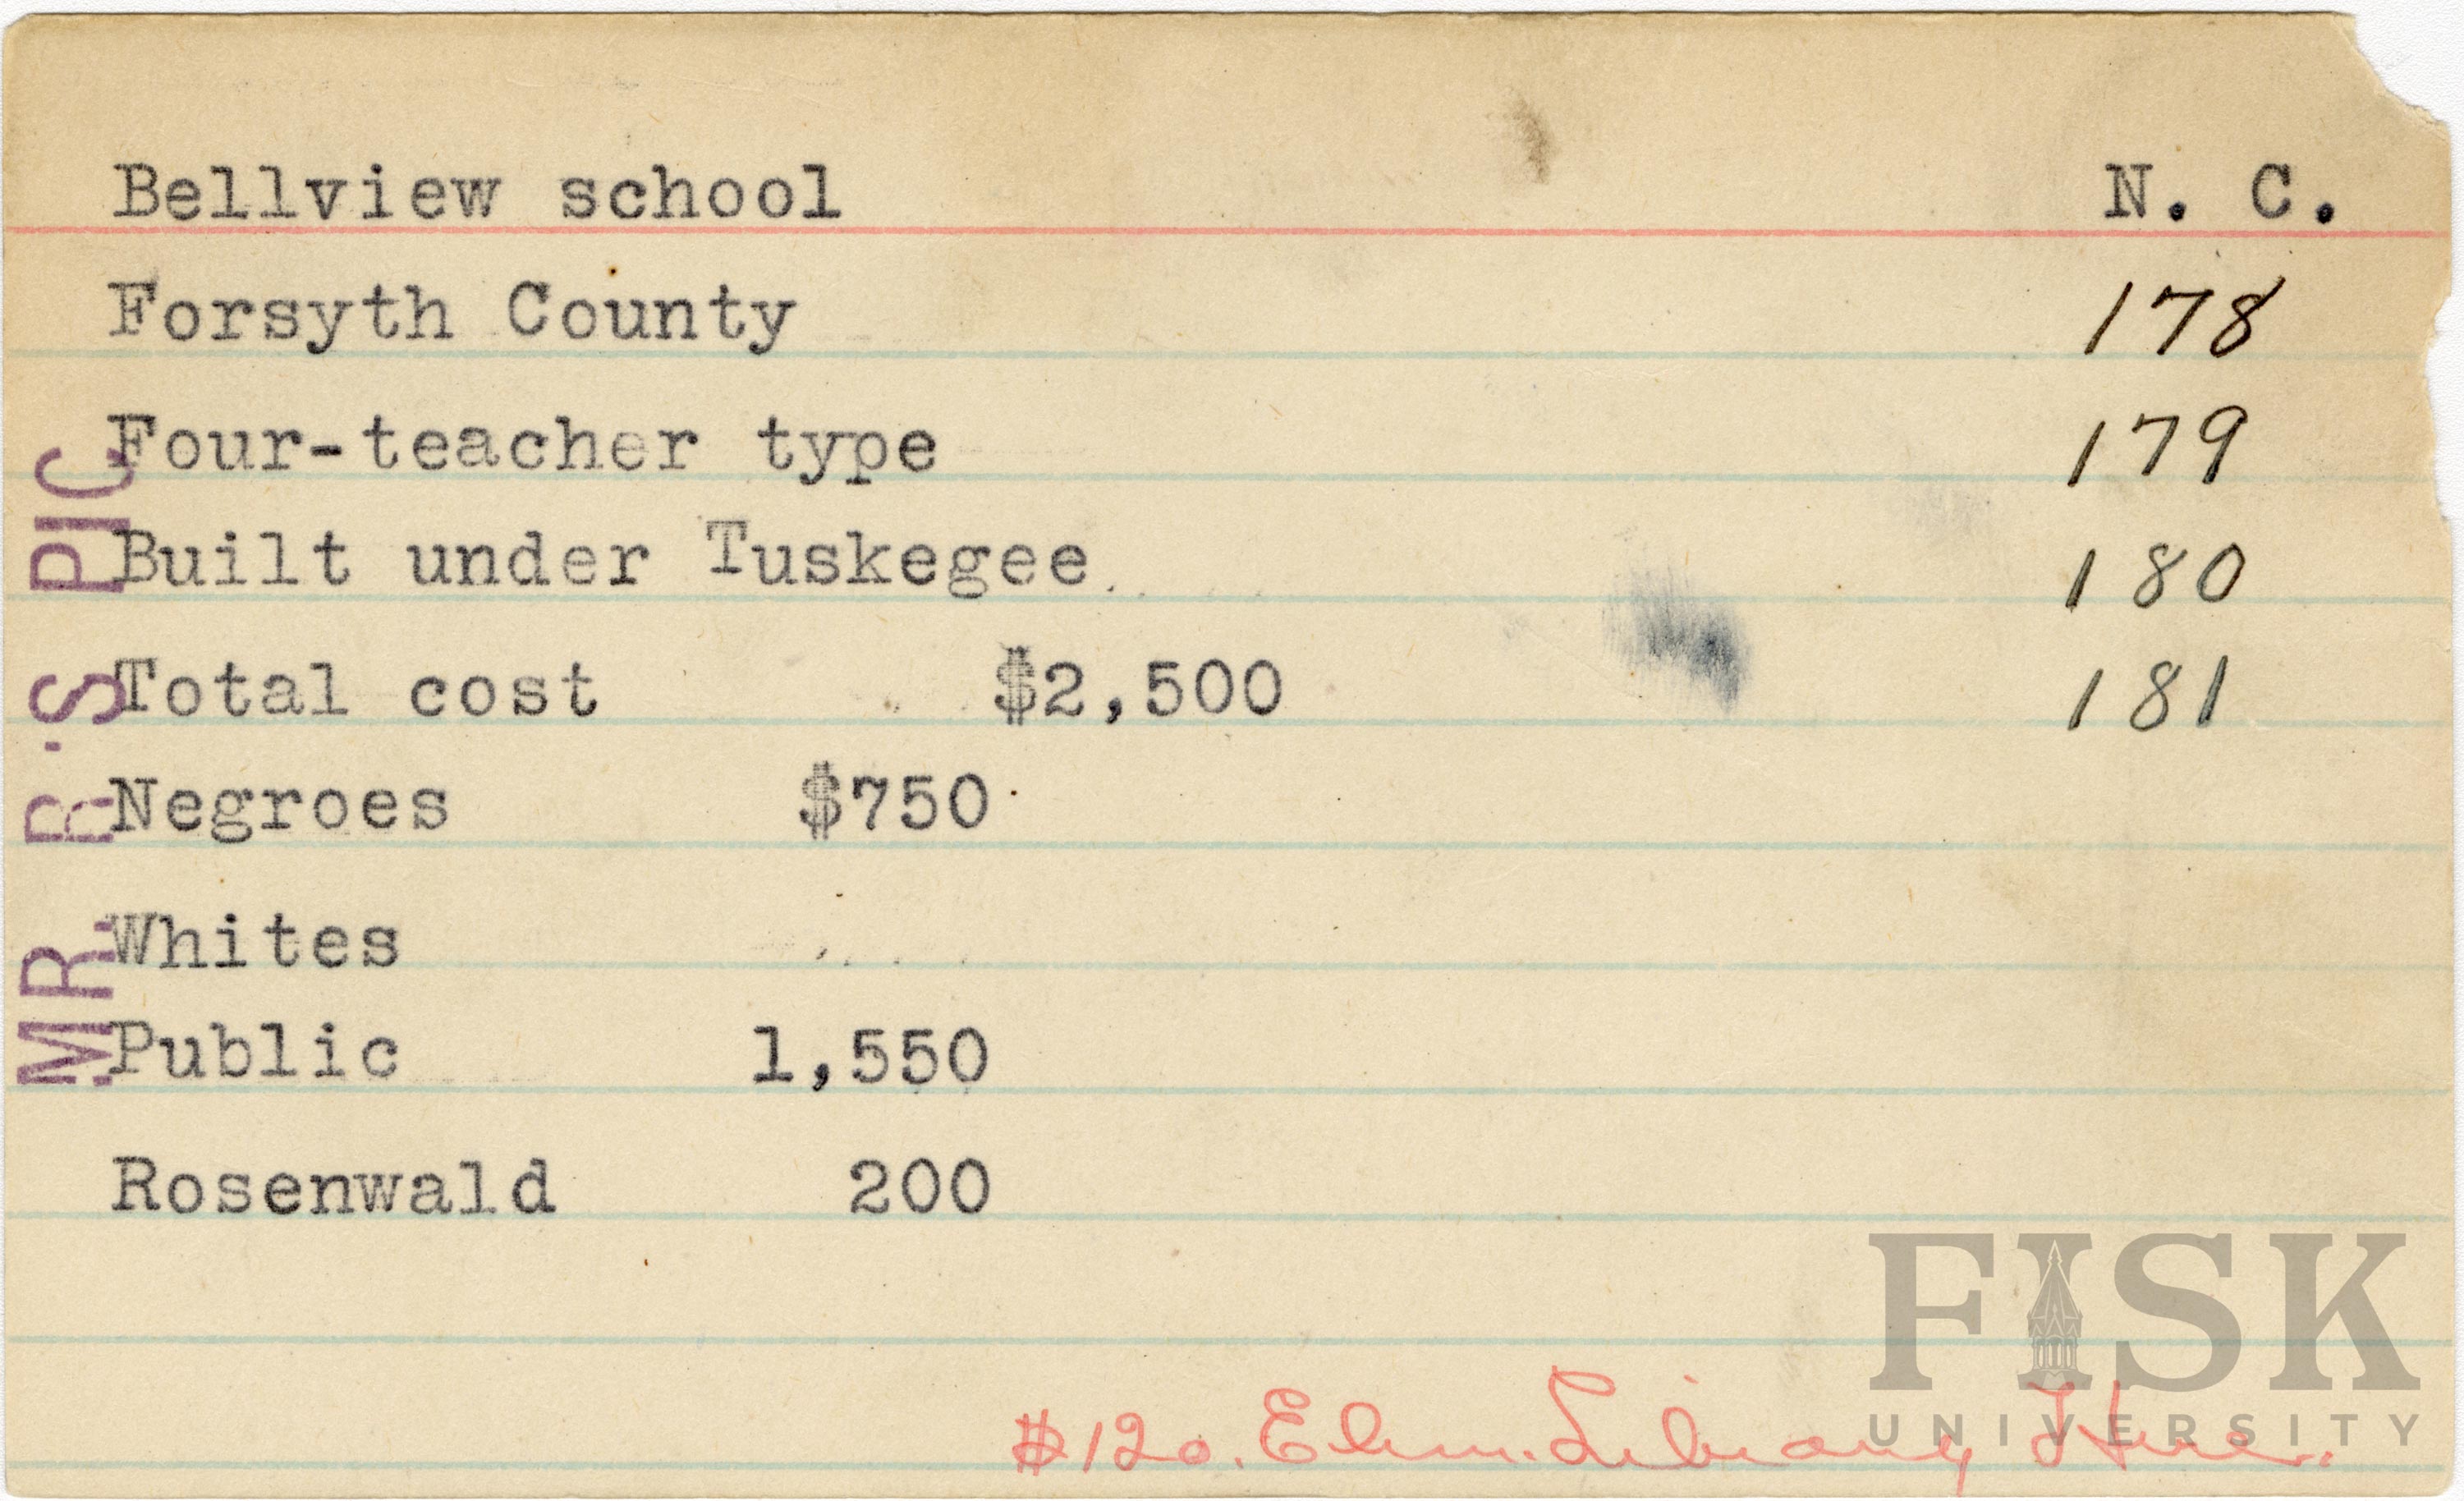 Bellview school N. C.
Forsyth County 178
Four-teacher type 179
Built under Tuskegee 180
Total cost $2,500 181
Negroes $750
Whites
Public 1,550
Rosenwald 200
$120. Elem. Library Here.
MR. R.'S PIC
FISK
UNIVERSITY